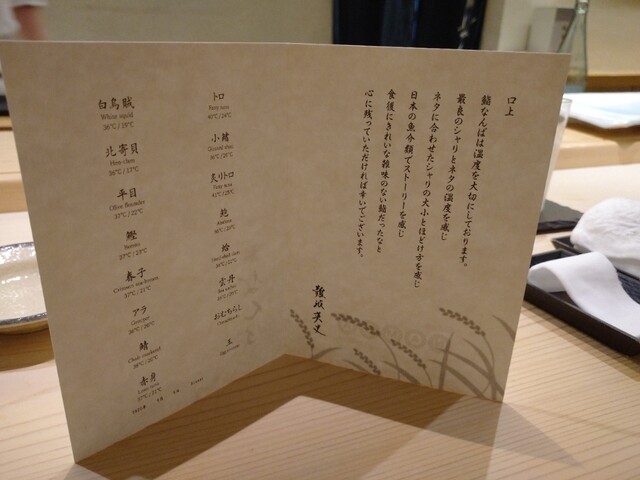 口上
鮨なんばは温度を大切にしております。
最良のシャリとネタの温度を感じ
ネタに合わせたシャリの大小とほどけ方を感じ
日本の魚介類でストーリーを感じ
食後にきれいな雑味のない鮨だったなと
心に残っていただければ幸いでございます。
難波英史
白烏賊
White squid
36℃/25℃
北寄貝
Hen clam
平目
Olive flounder
37℃/22℃
鰹
Bonito
37℃/23℃
春子
アラ
Grouper
鯖
Chub mackerel
赤身
Lean tuna
トロ
Fatty tuna
40℃/24℃
小鰭
Gizzard shad
炙りトロ
Fatty tuna
鮑
Abalone
蛤
雲丹
Sea urchin
おむちらし
玉